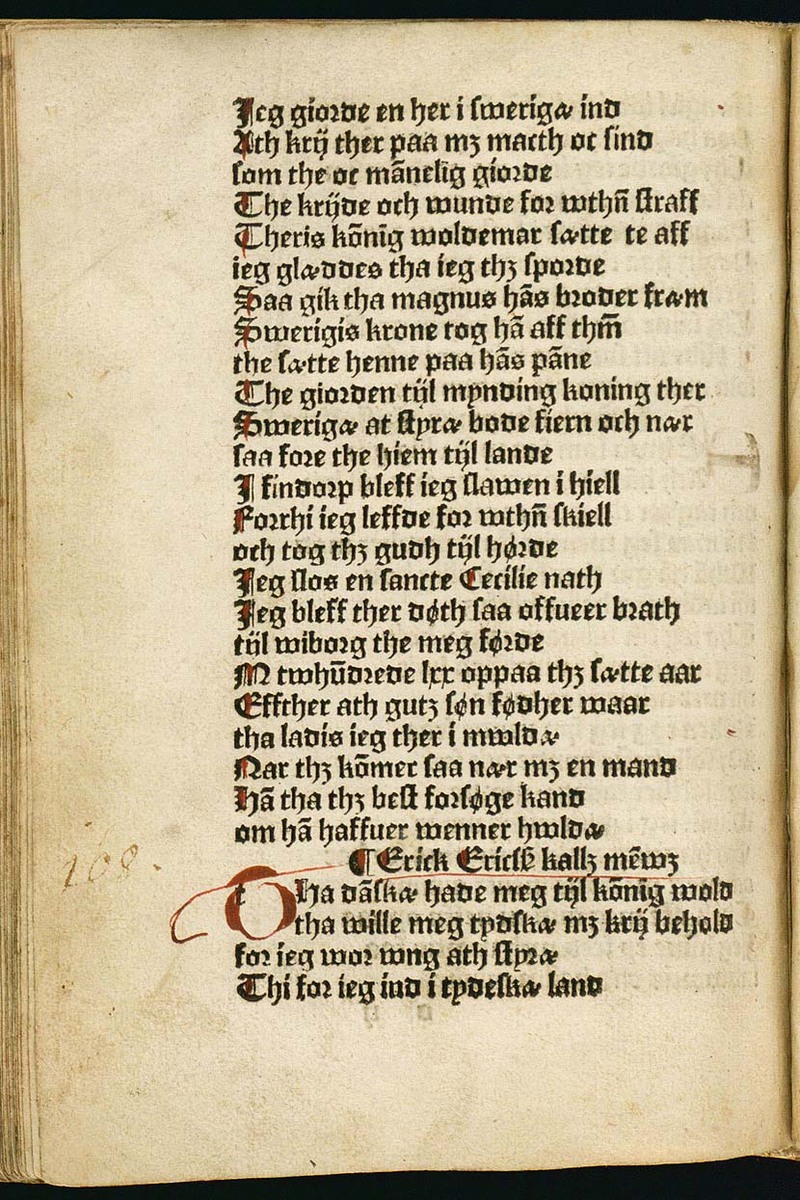 Jeg giorde en her i swerigæ ind
Ath krij ther paa mꝫ macth oc sind
som the oc mānelig giorde
The krijde och wunde for wthn̄ straff
Theris kōnig woldemar sætte te aff
ieg glæddes tha ieg thꝫ sporde
Saa gik tha magnus hās broder fræm
Swerigis krone tog hā aff thm̄
the sætte henne paa hās pāne
The giorden tijl mynding koning ther
Swerigæ at styræ bode fiern och nær
saa fore the hiem tijl lande
J findorp bleff ieg slawen i hiell
Forthi ieg leffde for wthn̄ skiell
och tog thꝫ gudh tijl hørde
Jeg slos en sancte Cecilie nath
Jeg bleff ther døth saa offueer brath
tijl wiborg the meg førde
M twhūdrede lxx oppaa thꝫ sætte aar
Effther ath gutꝫ søn fødher waar
tha ladis ieg ther i mwldæ
Nar thꝫ kōmer saa nær mꝫ en mand
Hā tha thꝫ best forsøge kand
om hā haffuer wenner hwldæ
¶Erick Ericsē kallꝫ mēwꝫ
THa dāskæ hade meg tijl kōnig wold
tha wille meg tydskæ mꝫ krij behold
108.
for ieg wor wng ath styræ
Thi for ieg ind i tydeskæ land